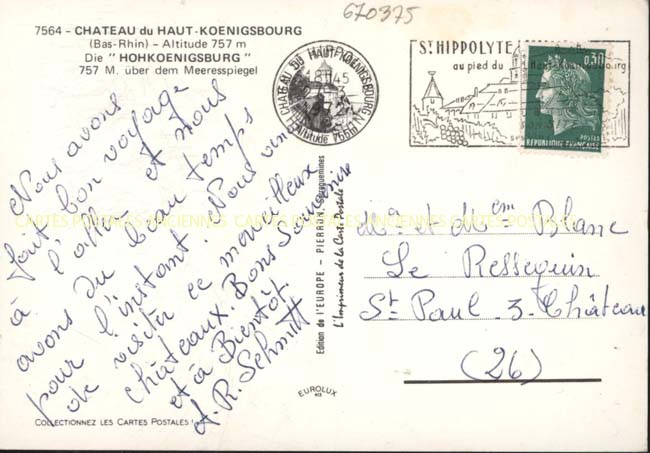 670375
7564 - CHATEAU du HAUT-KOENIGSBOURG
(Bas-Rhin) - Altitude 757 m
Die "HOHKOENIGSBURG"
757 M. über dem Meeresspiegel
CHATEAU DU HAUT-KOENIGSBOURG
18H45
Altitude 755m
ST HIPPOLYTE
au pied du Haut-Koenigsbourg
0,30
POSTES
REPUBLIQUE FRANCAISE
Nous avons
fait bon voyage
à l'aller et nous
avons du beau temps
pour l'instant. Nous venons
de visiter ce merveilleux
châteaux. Bons Souvenirs
et à Bientôt
A. R. Schmitt
Edition de l'EUROPE - PIERRON, Sarreguemines
L'Imprimeur de la Carte Postale
EUROLUX
Mr et Mme Blanc
Le Resseguin
St Paul-3-Château
(26)
COLLECTIONNEZ LES CARTES POSTALES !
CARTES POSTALES ANCIENNES CARTES POSTALES ANCIENNES CARTES POSTALES ANCIENNES